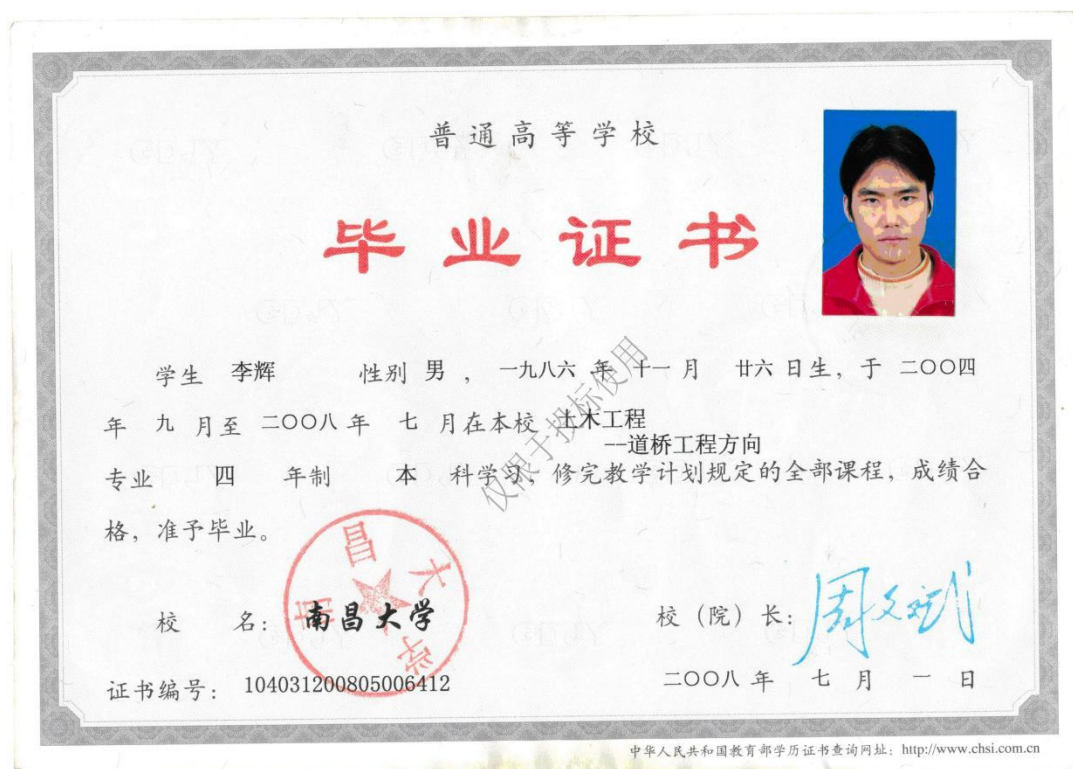 普通高等学校
毕业证书
学生 李辉 性别 男 ， 一九八六 年 十一 月 廿六 日生，于 二〇〇四
年 九 月至 二〇〇八 年 七 月在本校 土木工程
--道桥工程方向
专业 四 年制 本 科学习，修完教学计划规定的全部课程，成绩合
格，准予毕业。
仅限于投标使用
南昌大学
校 名： 南昌大学
校（院）长： 周文斌
证书编号： 104031200805006412
二〇〇八 年 七 月 一 日
中华人民共和国教育部学历证书查询网址：http://www.chsi.com.cn